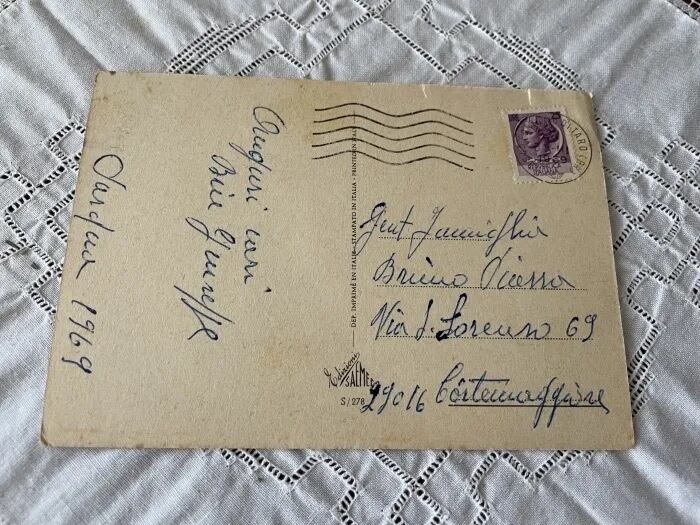 Auguri cari
Pasqua 1969
DEP. IMPRIMÉ EN ITALIE - STAMPATO IN ITALIA - PRINTED IN ITALY
Edizioni
SAEMEC
S/278
Gent Famiglia
Bruno
Via S. Lorenzo 69
29016 Cortemaggiore